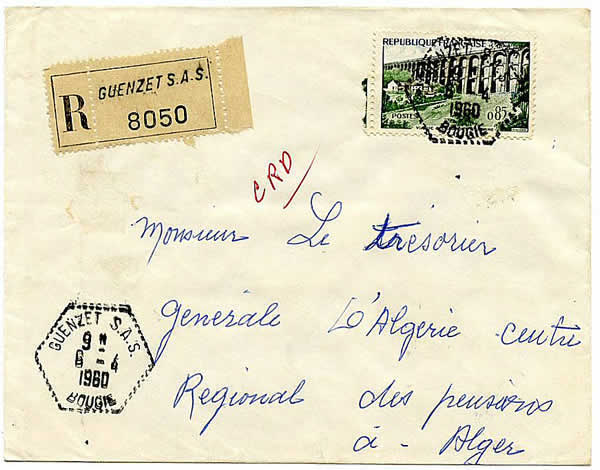 GUENZET S.A.S.
R 8050
REPUBLIQUE FRANÇAISE
1960
BOUGIE
POSTES
0,85
CRD
Monsieur Le trésorier
Generale D'Algerie centre
Regional des pensions
à - Alger
GUENZET S.A.S.
9 H
6 - 4
1960
BOUGIE